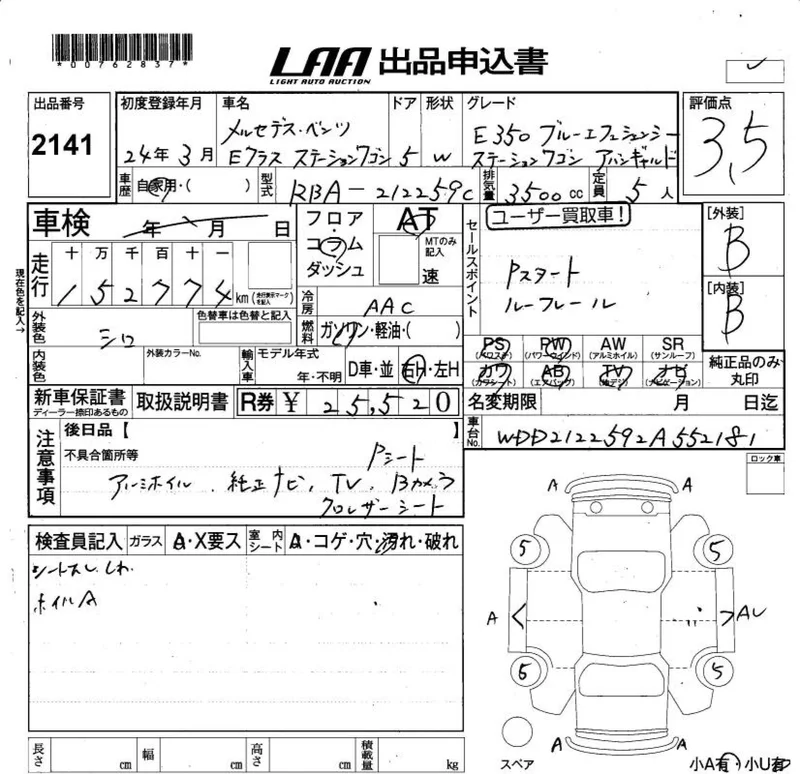 *00762837*
LAA 出品申込書
LIGHT AUTO AUCTION
出品番号
2141
初度登録年月
24年 3月
車名
メルセデス・ベンツ
Eクラス ステーションワゴン
ドア
5
形状
W
グレード
E350 ブルーエフィシェンシー
ステーションワゴン アバンギャルド
評価点
3,5
車歴
自家用・( )
型式
RBA-212259C
排気量
3500cc
定員
5人
車検
年 月 日
フロア
・
コラム
ダッシュ
AT
MTのみ
記入
速
セールスポイント
ユーザー買取車!
Pスタート
ルーフレール
[外装]
B
[内装]
B
現在色を記入→
走行
十 万 千 百 十 一
1 5 2 7 7 4 km
(走行表示マーク)
を記入
冷房
AAC
燃料
ガソリン・軽油・( )
外装色
シロ
色替車は色替と記入
内装色
外装カラーNo.
輸入車
モデル年式
年・不明
D車・並
右H・左H
PS
(パワステ)
PW
(パワーウインド)
AW
(アルミホイル)
SR
(サンルーフ)
カワ
(カワシート)
AB
(エアバッグ)
TV
(地デジ)
ナビ
(ナビゲーション)
純正品のみ
丸印
新車保証書
ディーラー捺印あるもの
取扱説明書
R券 ¥ 25,520
名変期限 月 日迄
車台No.
WDD2122592A552181
注意事項
後日品【 】
不具合箇所等
Pシート
アルミホイル、純正ナビ、TV、Bカメラ
クロレザーシート
ロック車
検査員記入
ガラス
A・X要ス
室内
シート
A・コゲ・穴・汚れ・破れ
シートスレ、しわ
ホイルA
A A
5 5
A < > AU
6 5
A A
スペア
小A有・小U有
長さ cm
幅 cm
高さ cm
積載量 kg